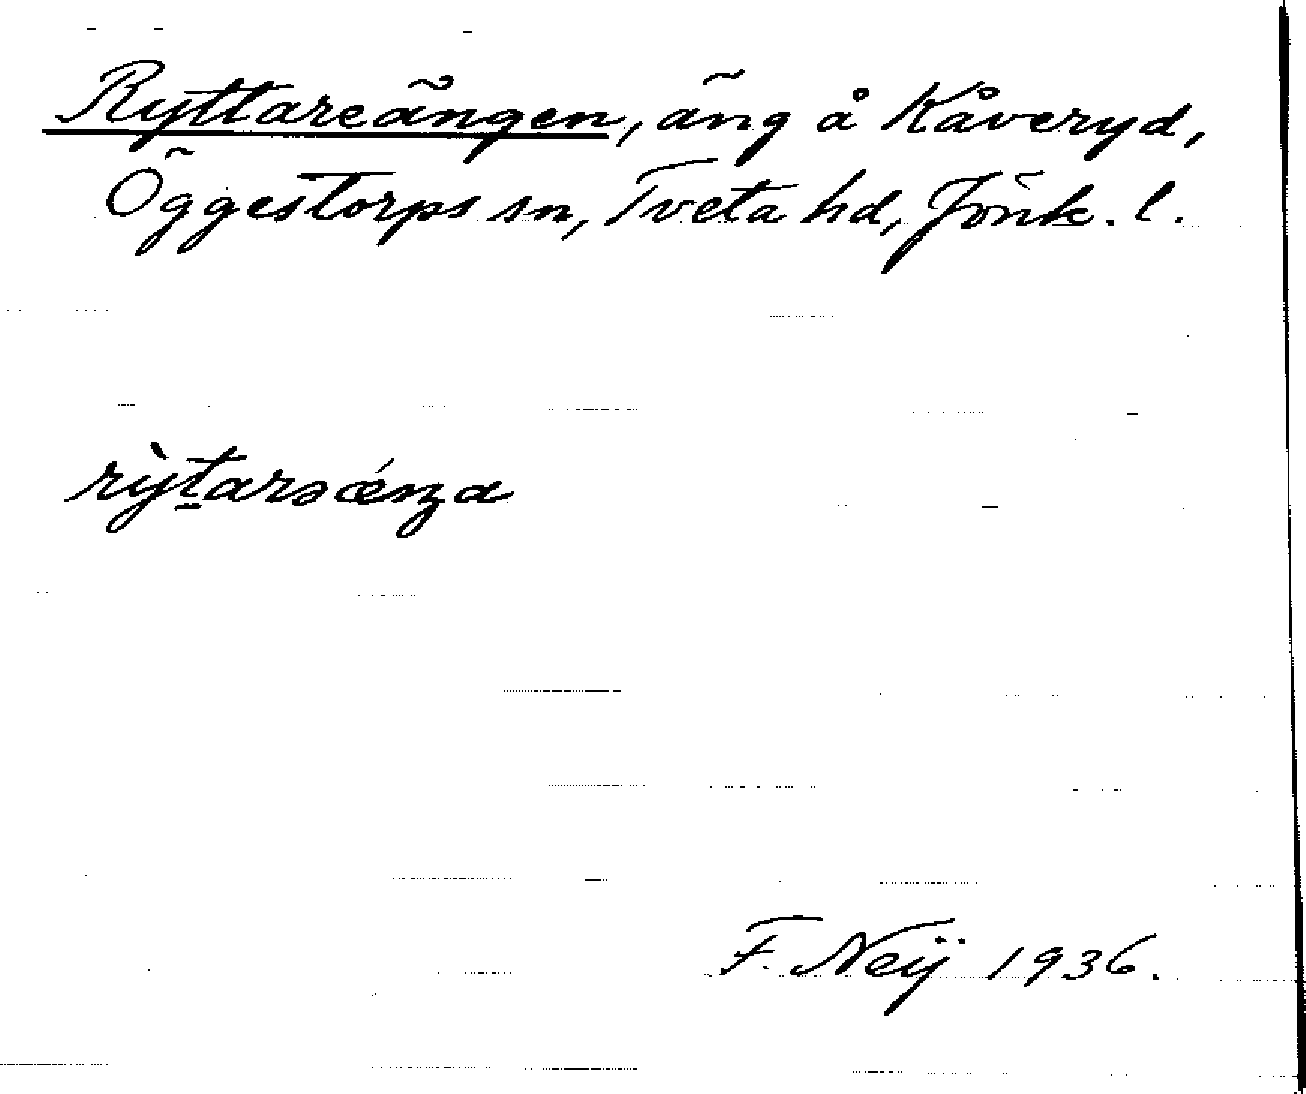 Ryttareängen, äng å Kåveryd,
Öggestorps sn, Tveta hd, Jönk. l.
rỳt̠arəǽŋa
F. Neij 1936.